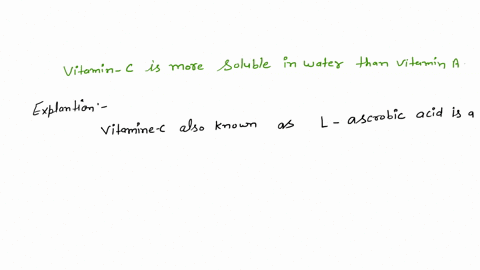 Vitamin-C is more soluble in water than vitamin A.
Explantion:-
Vitamine-C also known as L-ascrobic acid is a